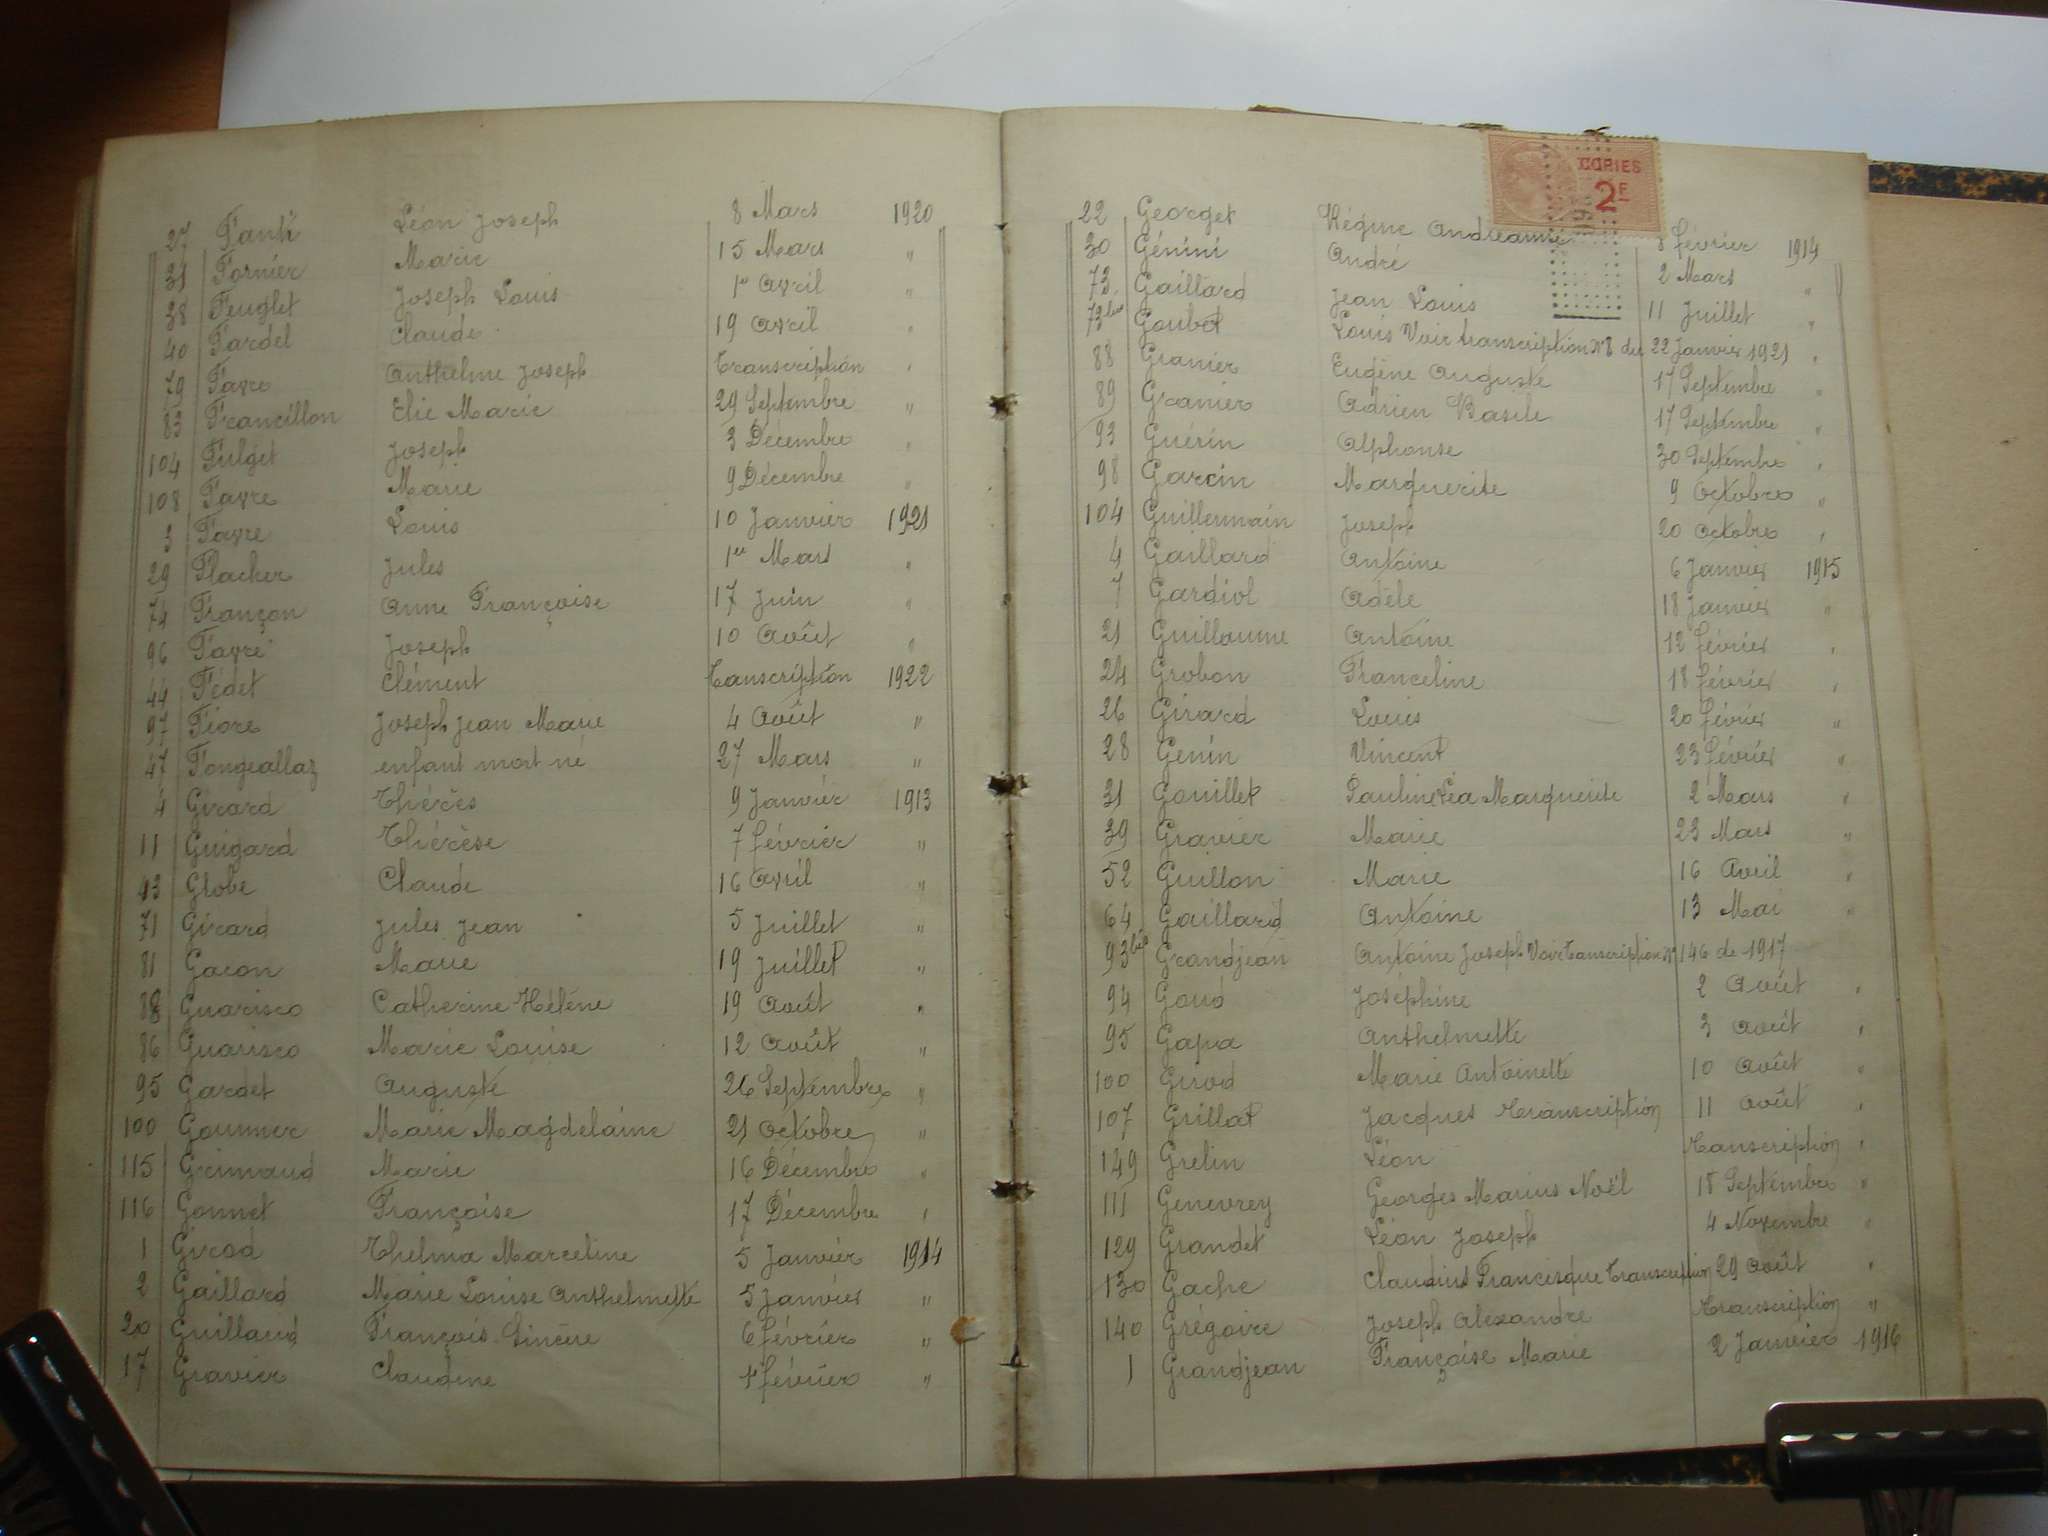 27 Fanti Léon Joseph 8 Mars 1920
31 Fornier Marie 15 Mars "
38 Feuglet Joseph Louis 1er Avril "
40 Fardel Claude 19 Avril "
79 Favre Anthelme Joseph Transcription "
83 Francillon Elie Marie 29 Septembre "
104 Fulget Joseph 3 Décembre "
108 Favre Marie 9 Décembre "
3 Favre Louis 10 Janvier 1921
29 Flacher Jules 1er Mars "
74 Françon Anne Françoise 17 Juin "
96 Favre Joseph 10 Août "
44 Fédet Clément Transcription 1922
97 Fiore Joseph Jean Marie 4 Août "
47 Fongeallaz enfant mort né 27 Mars "
4 Girard Thérès 9 Janvier 1913
11 Guigard Thérèse 7 février "
43 Globe Claude 16 Avril "
71 Girard Jules Jean 5 Juillet "
81 Gacon Marie 19 Juillet "
88 Guarisco Catherine Hélène 19 Août "
86 Guarisco Marie Louise 12 Août "
95 Gardet Auguste 26 Septembre "
100 Gounner Marie Magdelaine 21 Octobre "
115 Grimaud Marie 16 Décembre "
116 Gonnet Françoise 17 Décembre "
1 Girod Thelma Marceline 5 Janvier 1914
2 Gaillard Marie Louise Anthelmette 5 Janvier "
20 Guillaud François Sincère 6 février "
17 Gravier Claudine 4 février "
COPIES
2F
22 Georget Régine Andréanne 8 février 1914
30 Génini André 2 Mars "
73 Gaillard Jean Louis 11 Juillet "
73bis Goubet Louis Voir transcription N°8 du 22 Janvier 1921 "
88 Granier Eugène Auguste 17 Septembre "
89 Granier Adrien Basile 17 Septembre "
93 Guérin Alphonse 30 Septembre "
98 Garcin Marguerite 9 Octobre "
104 Guillermain Joseph 20 Octobre "
4 Gaillard Antoine 6 Janvier 1915
7 Gardiol Adèle 18 Janvier "
21 Guillaume Antoine 12 février "
24 Grobon Franceline 18 février "
26 Girard Louis 20 février "
28 Genin Vincent 23 février "
31 Gouillet Pauline Léa Marguerite 2 Mars "
39 Gravier Marie 23 Mars "
52 Guillon Marie 16 Avril "
64 Gaillard Antoine 13 Mai "
93bis Grandjean Antoine Joseph Voir Transcription N° 146 de 1917
94 Goud Joséphine 2 Août "
95 Gapa Anthelmette 3 Août "
100 Girod Marie Antoinette 10 Août "
107 Grillat Jacques Transcription 11 Août "
149 Grelin Léon Transcription "
111 Genevrey Georges Marius Noël 18 Septembre "
129 Grandet Léon Joseph 4 Novembre "
130 Gache Claudius Francisque Transcription 29 Août "
140 Grégoire Joseph Alexandre Transcription "
1 Grandjean Françoise Marie 2 Janvier 1916